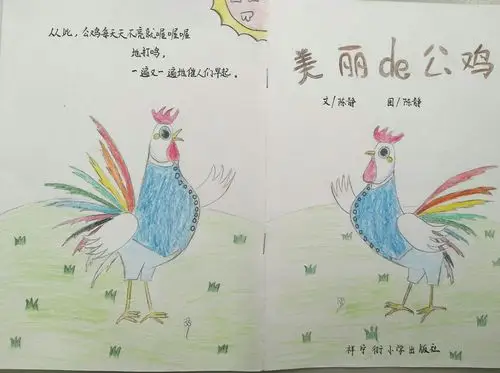 从此，公鸡每天天不亮就喔喔喔
地打鸣，
一遍又一遍地催人们早起。
美丽de公鸡
文/陈静 图/陈静
祥宁街小学出版社